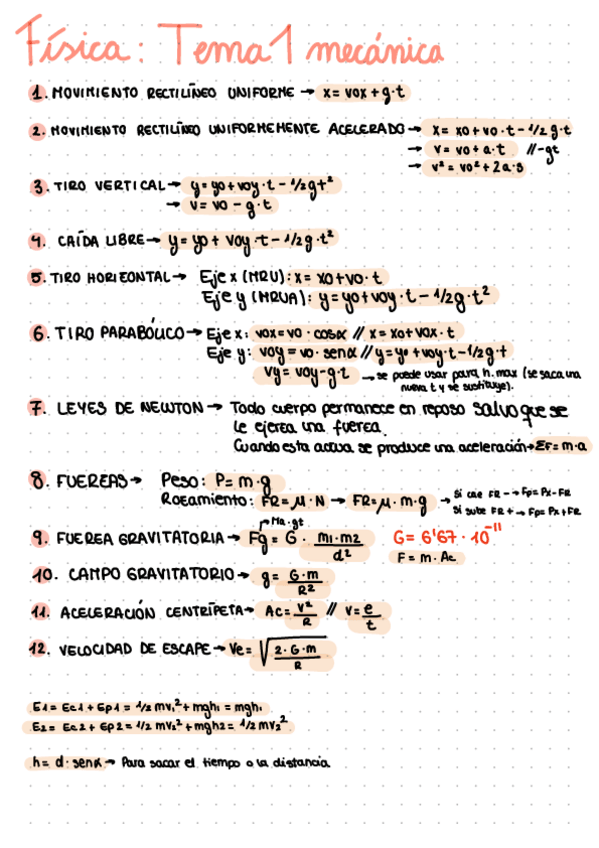 Física: Tema 1 mecánica
1. MOVIMIENTO RECTILÍNEO UNIFORME → x = vox + g·t
2. MOVIMIENTO RECTILÍNEO UNIFORMEMENTE ACELERADO → x = xo + vo·t - 1/2 g·t
→ v = vo + a·t // -gt
→ v² = vo² + 2a·s
3. TIRO VERTICAL → y = yo + voy·t - 1/2gt²
→ v = vo - g·t
4. CAÍDA LIBRE → y = yo + voy·t - 1/2g·t²
5. TIRO HORIZONTAL → Eje x (MRU): x = xo + vo·t
Eje y (MRUA): y = yo + voy·t - 1/2g·t²
6. TIRO PARABÓLICO → Eje x: vox = vo·cosα // x = xo + vox·t
Eje y: voy = vo·senα // y = yo + voy·t - 1/2g·t
vy = voy - g·t → se puede usar para h.max (se saca una
nueva t y se sustituye).
7. LEYES DE NEWTON → Todo cuerpo permanece en reposo salvo que se
le ejerza una fuerza.
Cuando esta activa se produce una aceleración → ΣF = m·a
8. FUERZAS → Peso: P = m·g
Rozamiento: FR = μ·N → FR = μ·m·g → Si cae FR - → Fp = Px - FR
Si sube FR + → Fp = Px + FR
9. FUERZA GRAVITATORIA → Fg = G · m1·m2 / d² G = 6'67·10⁻¹¹
→ Ma·gt
F = m·Ac
10. CAMPO GRAVITATORIO → g = G·m / R²
11. ACELERACIÓN CENTRÍPETA → Ac = v² / R // v = e / t
12. VELOCIDAD DE ESCAPE → Ve = √(2·G·m / R)
E1 = Ec1 + Ep1 = 1/2 mv₁² + mgh₁ = mgh₁
E2 = Ec2 + Ep2 = 1/2 mv₂² + mgh2 = 1/2 mv₂²
h = d·senα → Para sacar el tiempo o la distancia